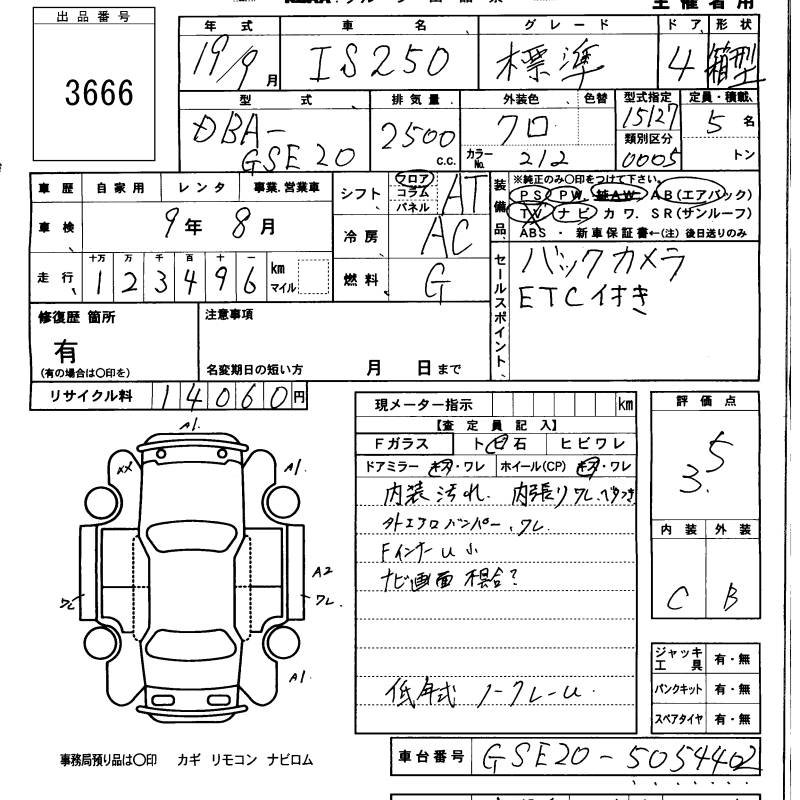 主催者用
出品番号
3666
年式 車名 グレード ドア 形状
19/9月 IS250 標準 4 箱型
型式 排気量 外装色 色替 型式指定 定員・積載
DBA-GSE20 2500 c.c. クロ 15127 5名
カラーNo. 212 類別区分 0005 トン
車歴 自家用 レンタ 事業、営業車
車検 9年 8月
走行 十万 万 千 百 十 一
123496 km マイル
シフト フロア コラム パネル AT
冷房 AC
燃料 G
装備品 ※純正のみ○印をつけて下さい。
PS PW AW AB(エアバック)
TV ナビ カワ. SR(サンルーフ)
ABS・新車保証書←(注)後日送りのみ
セールスポイント
バックカメラ
ETC付き
修復歴 箇所
有
(有の場合は○印を)
注意事項
名変期日の短い方 月 日まで
リサイクル料 14060円
現メーター指示 km
【査定員記入】
Fガラス ト ビ 石 ヒビワレ
ドアミラー キズ・ワレ ホイール(CP) キズ・ワレ
内装汚れ. 内張りワレ.
外エアロバンパー、ワレ
FインナーU小
ナビ画面
低年式
評価点
3.5
内装 外装
C B
A1.
XX
A1.
A2
ワレ
ワレ.
A1.
ジャッキ工具 有・無
パンクキット 有・無
スペアタイヤ 有・無
事務局預り品は○印 カギ リモコン ナビロム
車台番号 GSE20-5054402